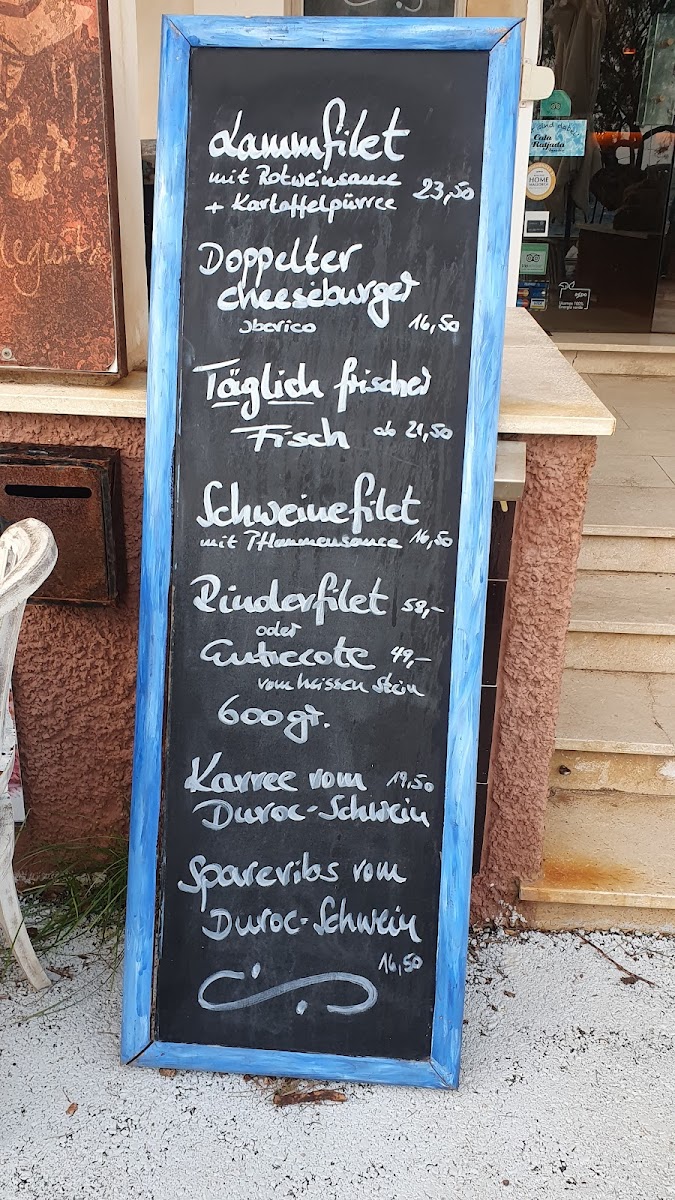 Lammfilet
mit Rotweinsauce
+ Kartoffelpürree 23,50
Doppelter
Cheeseburger
Iberico 16,50
Täglich frischer
Fisch ab 21,50
Schweinefilet
mit Pflaumensauce 16,50
Rinderfilet 58,-
oder
Entrecote 49,-
vom heissen Stein
600gr.
Karree vom 19,50
Duroc-Schwein
Spareribs vom
Duroc-Schwein
16,50
Cala
Ratjada
HOME
VISA